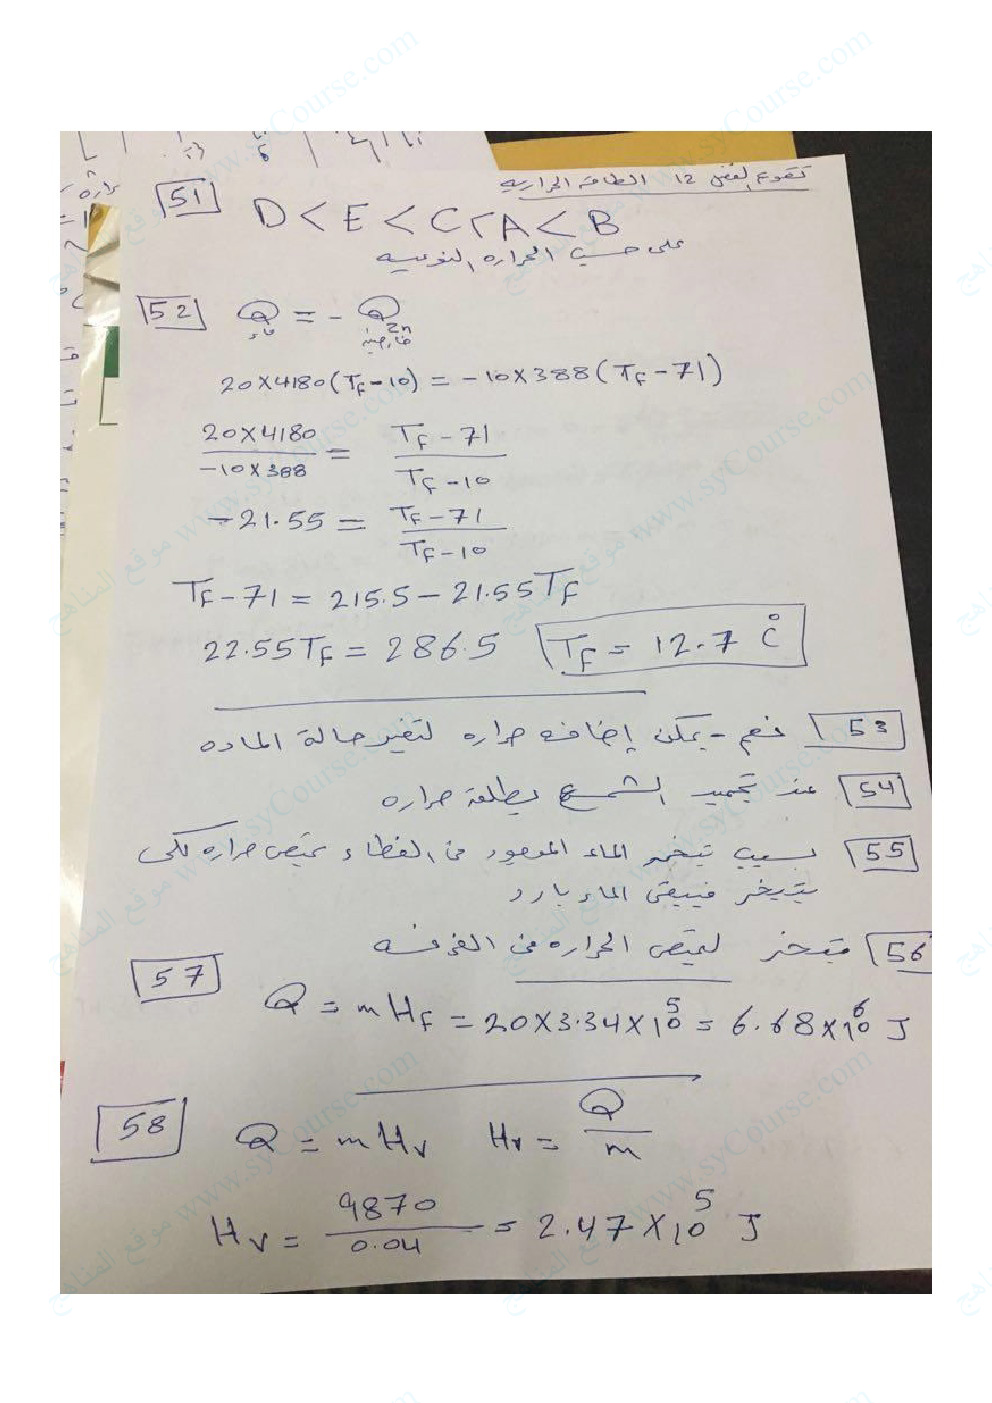 تقويم الفصل 12 الطاقة الحرارية
51 D < E < C < A < B
على حسب الحرارة النوعية
52 Q ماء = - Q Zn خارصين
20×4180(Tf-10) = -10×388(Tf-71)
20×4180 / -10×388 = Tf-71 / Tf-10
-21.55 = Tf-71 / Tf-10
Tf-71 = 215.5 - 21.55Tf
22.55Tf = 286.5 Tf = 12.7 C°
53 نعم - يمكن إضافه حراره لتغير حالة الماده
54 عند تجميد الشمع يطلق حراره
55 بسبب تبخر الماء الموجود في الغطاء يمتص حراره لكى
يتبخر فيبقى الماء بارد
56 يتبخر ليمتص الحراره من الغرفه
57 Q = mHf = 20×3.34×10^5 = 6.68×10^6 J
58 Q = mHv Hv = Q / m
Hv = 9870 / 0.04 = 2.47×10^5 J
موقع المناهج www.syCourse.com